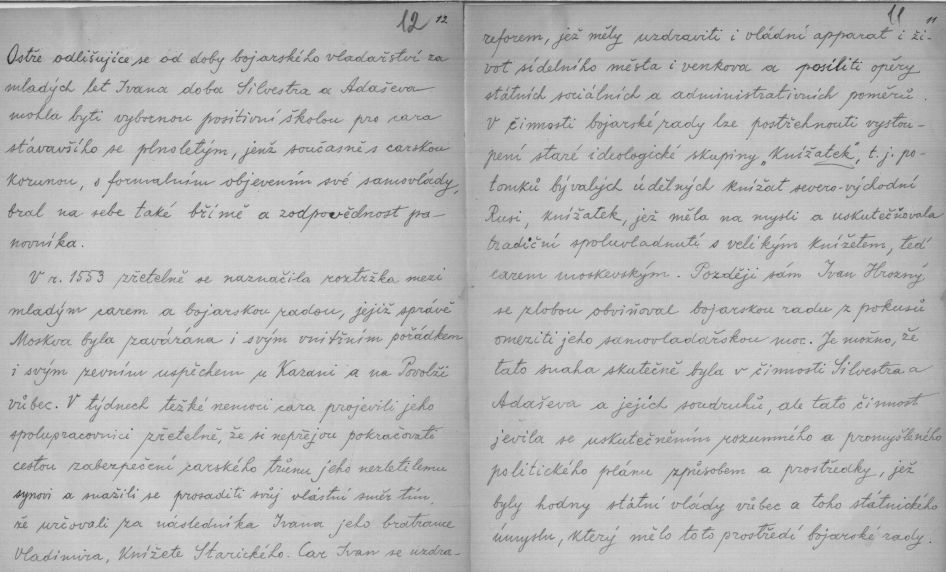 12 12
Ostře odlišujíce se od doby bojarského vladařství za
mladých let Ivana doba Silvestra a Adaševa
mohla byti vybornou positivní školou pro cara
stávavšího se plnoletým, jenž současně s carskou
korunou, s formalním objevením své samovlády,
bral na sebe také břímě a zodpovědnost pa-
novníka.
V r. 1553 zřetelně se naznačila roztržka mezi
mladým carem a bojarskou radou, jejiž správě
Moskva byla zavázána i svým vnitřním pořádkem
i svým zevním uspěchem u Kazani a na Povolží
vůbec. V týdnech težké nemoci cara projevili jeho
spolupracovnici zřetelně, že si nepřejou pokračovati
cestou zabezpečení carského trůnu jeho nezletilemu
synovi a snažili se prosaditi svůj vlástní směr tím,
že určovali za následníka Ivana jeho bratrance
Vladimira, Knížete Starického. Car Ivan se uzdra-
11 11
reforem, jež měly uzdraviti i vládní apparat i ži-
vot sídelního města i venkova a posíliti opěry
státních sociálních a administrativních poměrů.
V činnosti bojarské rady lze postřehnouti vystou-
pení staré ideologické skupiny „Knížatek", t. j. po-
tomků bývalých údělných knížat severo-východní
Rusi, knížatek, jež měla na mysli a uskutečňovala
tradiční spoluvladnutí s velikým knížetem, teď
carem moskevským. Později sám Ivan Hrozný
se zlobou obviňoval bojarskou radu z pokusů
omeziti jeho samovladařskou moc. Je možno, že
tato snaha skutečně byla v činnosti Silvestra a
Adaševa a jejich soudruhů, ale tato činnost
jevila se uskutečněním rozumného a promyšleného
politického plánu způsobem a prostředky, jež
byly hodny státní vlády vůbec a toho státnického
úmyslu, který mělo toto prostředí bojarské rady.